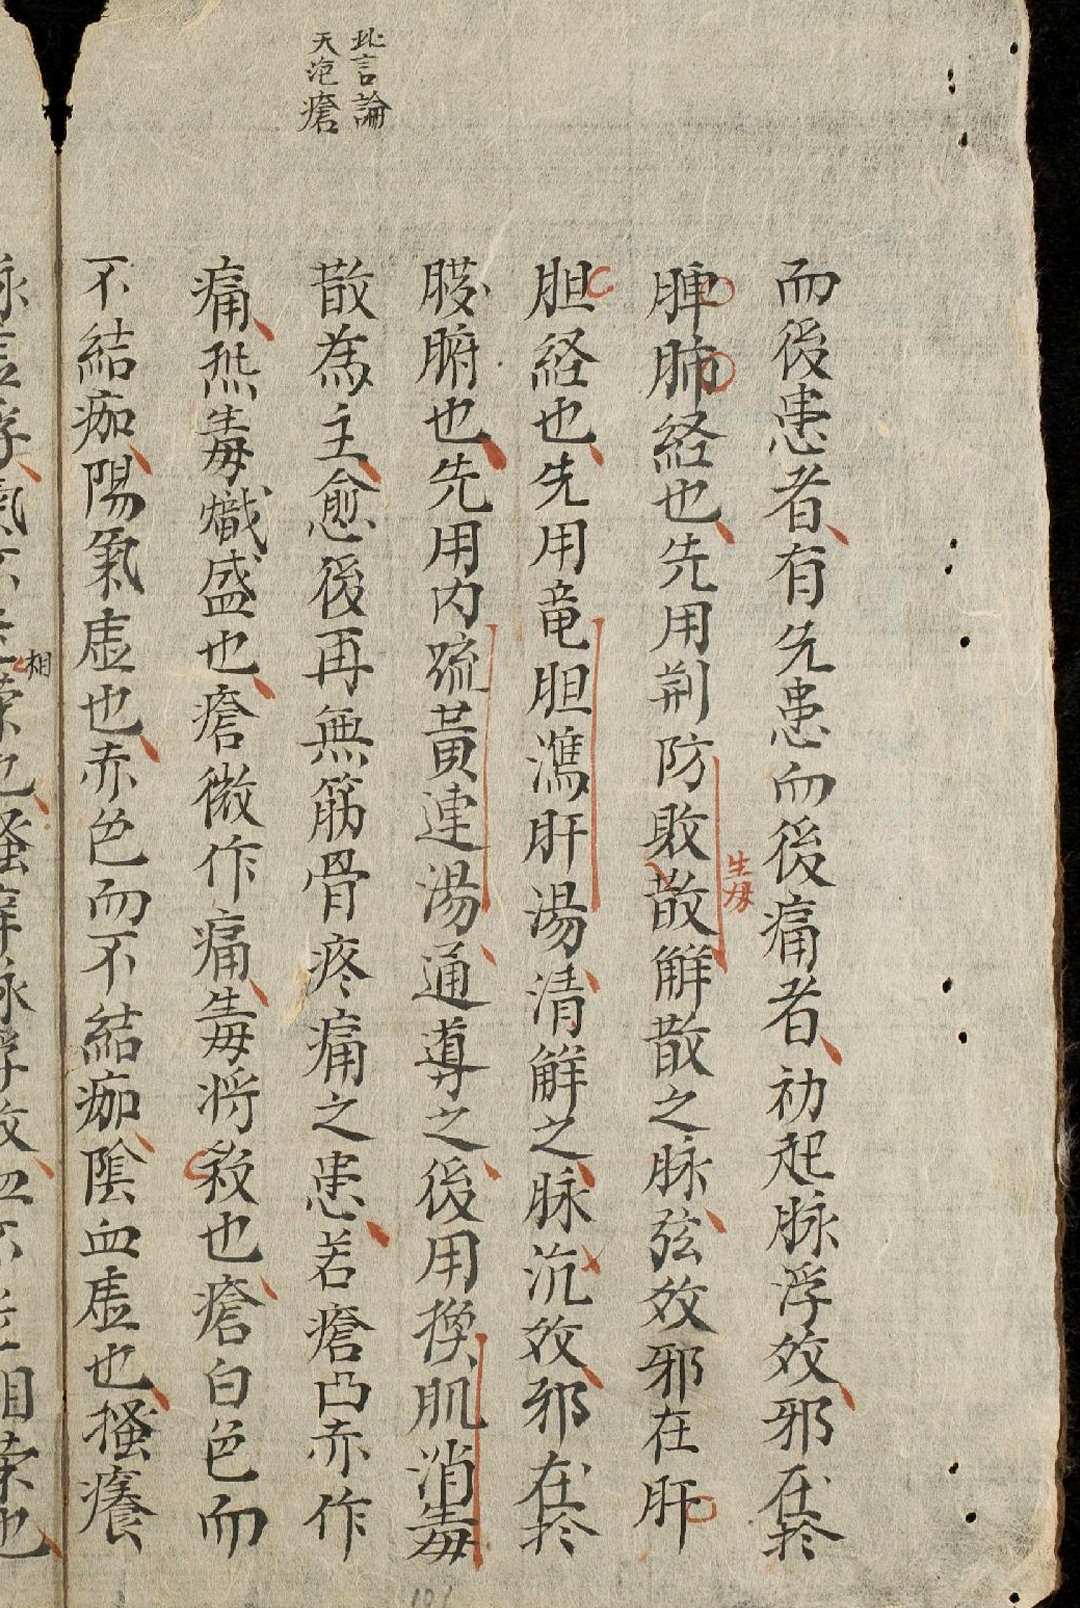 此言論
天泡瘡
而後患者有先患而後痛者初起脉浮数邪在於
脾肺経也先用荆防敗散解散之脉弦数邪在肝
生房
胆経也先用竜胆瀉肝湯清解之脉沉数邪在於
臓腑也先用内疏黄連湯通導之後用換肌消毒
散為主愈後再無筋骨疼痛之患若瘡凸赤作
痛熱毒熾盛也瘡微作痛毒将殺也瘡白色而
不結痂陽氣虚也赤色而不結痂陰血虚也搔癢
相